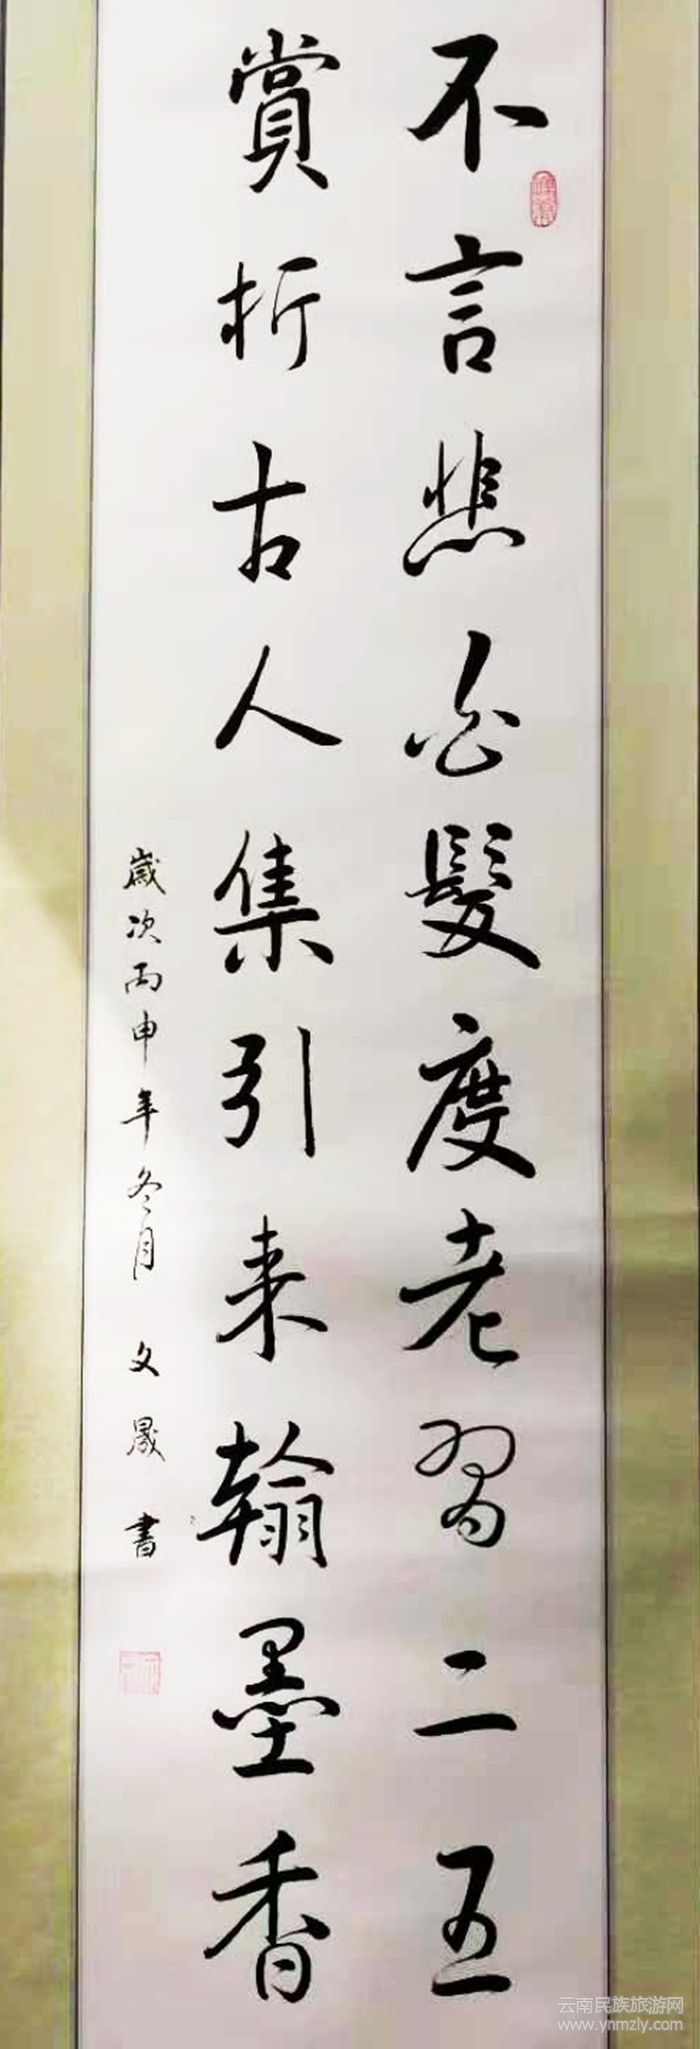 不言悲白髮度老習二五
賞析古人集引来翰墨香
歲次丙申年冬月 文晟 書
云南民族旅游网
www.ynmzly.com